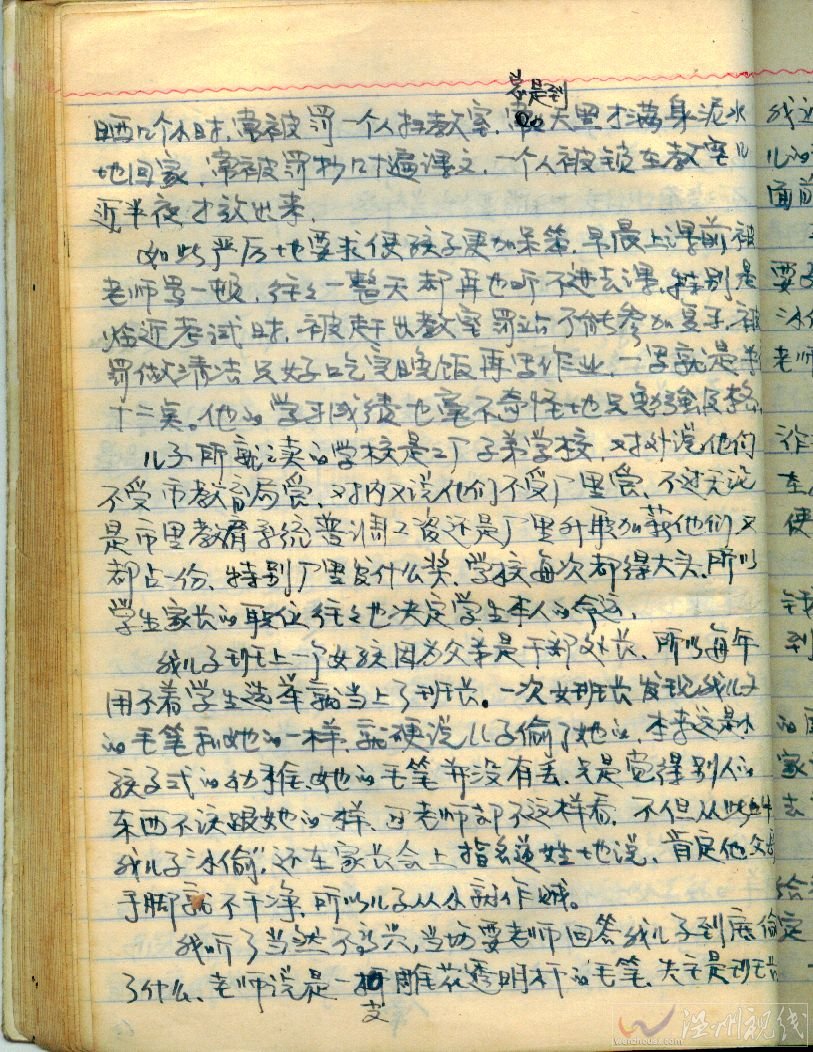 总是到
晒几个小时,常被罚一个人扫教室,天黑才满身泥水
地回家,常被罚抄几十遍课文,一个人被锁在教室儿
近半夜才放出来,
如此严厉地要求使孩子更加呆笨,早晨上课前被
老师骂一顿,往往一整天都再也听不进去课,特别是
临近考试时,被赶出教室罚站不能参加复习,被
罚做清洁只好吃完晚饭再写作业,一写就是半
十二点。他的学习成绩也毫不奇怪地只勉強及格
儿子所就读的学校是工厂子弟学校,对外说他们
不受市教育局管,对内又说他们不受厂里管,不过无论
是市里教育系统普调工资还是厂里升职加薪他们又
都占一份,特别厂里发什么奖,学校每次都得大头,所以
学生家长的职位往往也决定学生本人的命运,
我儿子班上一个女孩因为父亲是干部处长,所以每年
用不着学生选举就当上了班长。一次女班长发现我儿子
的毛笔和她的一样,就硬说儿子偷了她的,本来这是小
孩子式的幼稚,她的毛笔并没有丢,只是觉得别人的
东西不该跟她的一样,可老师却不这样看,不但从此叫
我儿子“小偷”,还在家长会上指名道姓地说,肯定他父母
手脚就不干净,所以儿子从小就作贼。
我听了当然不高兴,当场要老师回答我儿子到底偷
了什么,老师说是一支雕花透明杆的毛笔,失主是班长
泾州视线